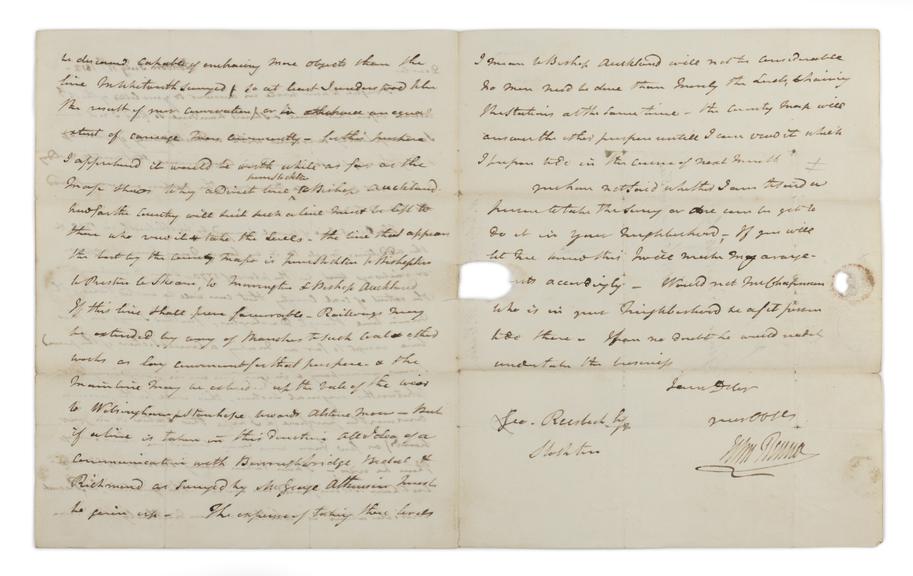 be deemed capable of embracing more objects than the
line Mr Whitworth surveyed (so at least I understood like
the result of our conversation) or in otherwise an equal
extent of carriage more conveniently – In this
I apprehend it would be worth while as far as the
Map shews Why a Direct line
from Stockton
to Bishop Auckland
how far the Country will suit such a line must be left to
those who view it & take the levels – the line that appears
the best by the county map is from Stockton to Bishopton
to Preston le Skearn, to Merrington & Bishop Auckland
If this line shall prove favourable – Railways may
be extended by way of Branches to such Coal & other
works as lay convenient for that purpose & the
Main line may be extend. up the Vale of the Wear
to Wolsingham & Stanhope towards Alstone Moor – But
if a line is taken in this direction all Idea of a
communication with Boroughbridge Bedal &
Richmond as surveyed by Mr George Atkinson must
be given up – The expenses of taking these levels
I mean to Bishop Auckland will not be considerable
No more need be done than merely the Levels, & chaining
the stations at the same time – the County Map will
answer the other purpose untill I can view it which
I propose to do in the course of next Month
You have not said whether I am to send a
person to take the Survey or one can be got to
do it in your Neighbourhood – If you will
let me know this I will make my arange-
ments accordingly – Would not Mr Chapman
who is in your Neighbourhood be a fit person
to do there – I have no doubt he would
undertake the business
I am D Sir
your Obt S
Geo. Raisbeck Esq
Stockton